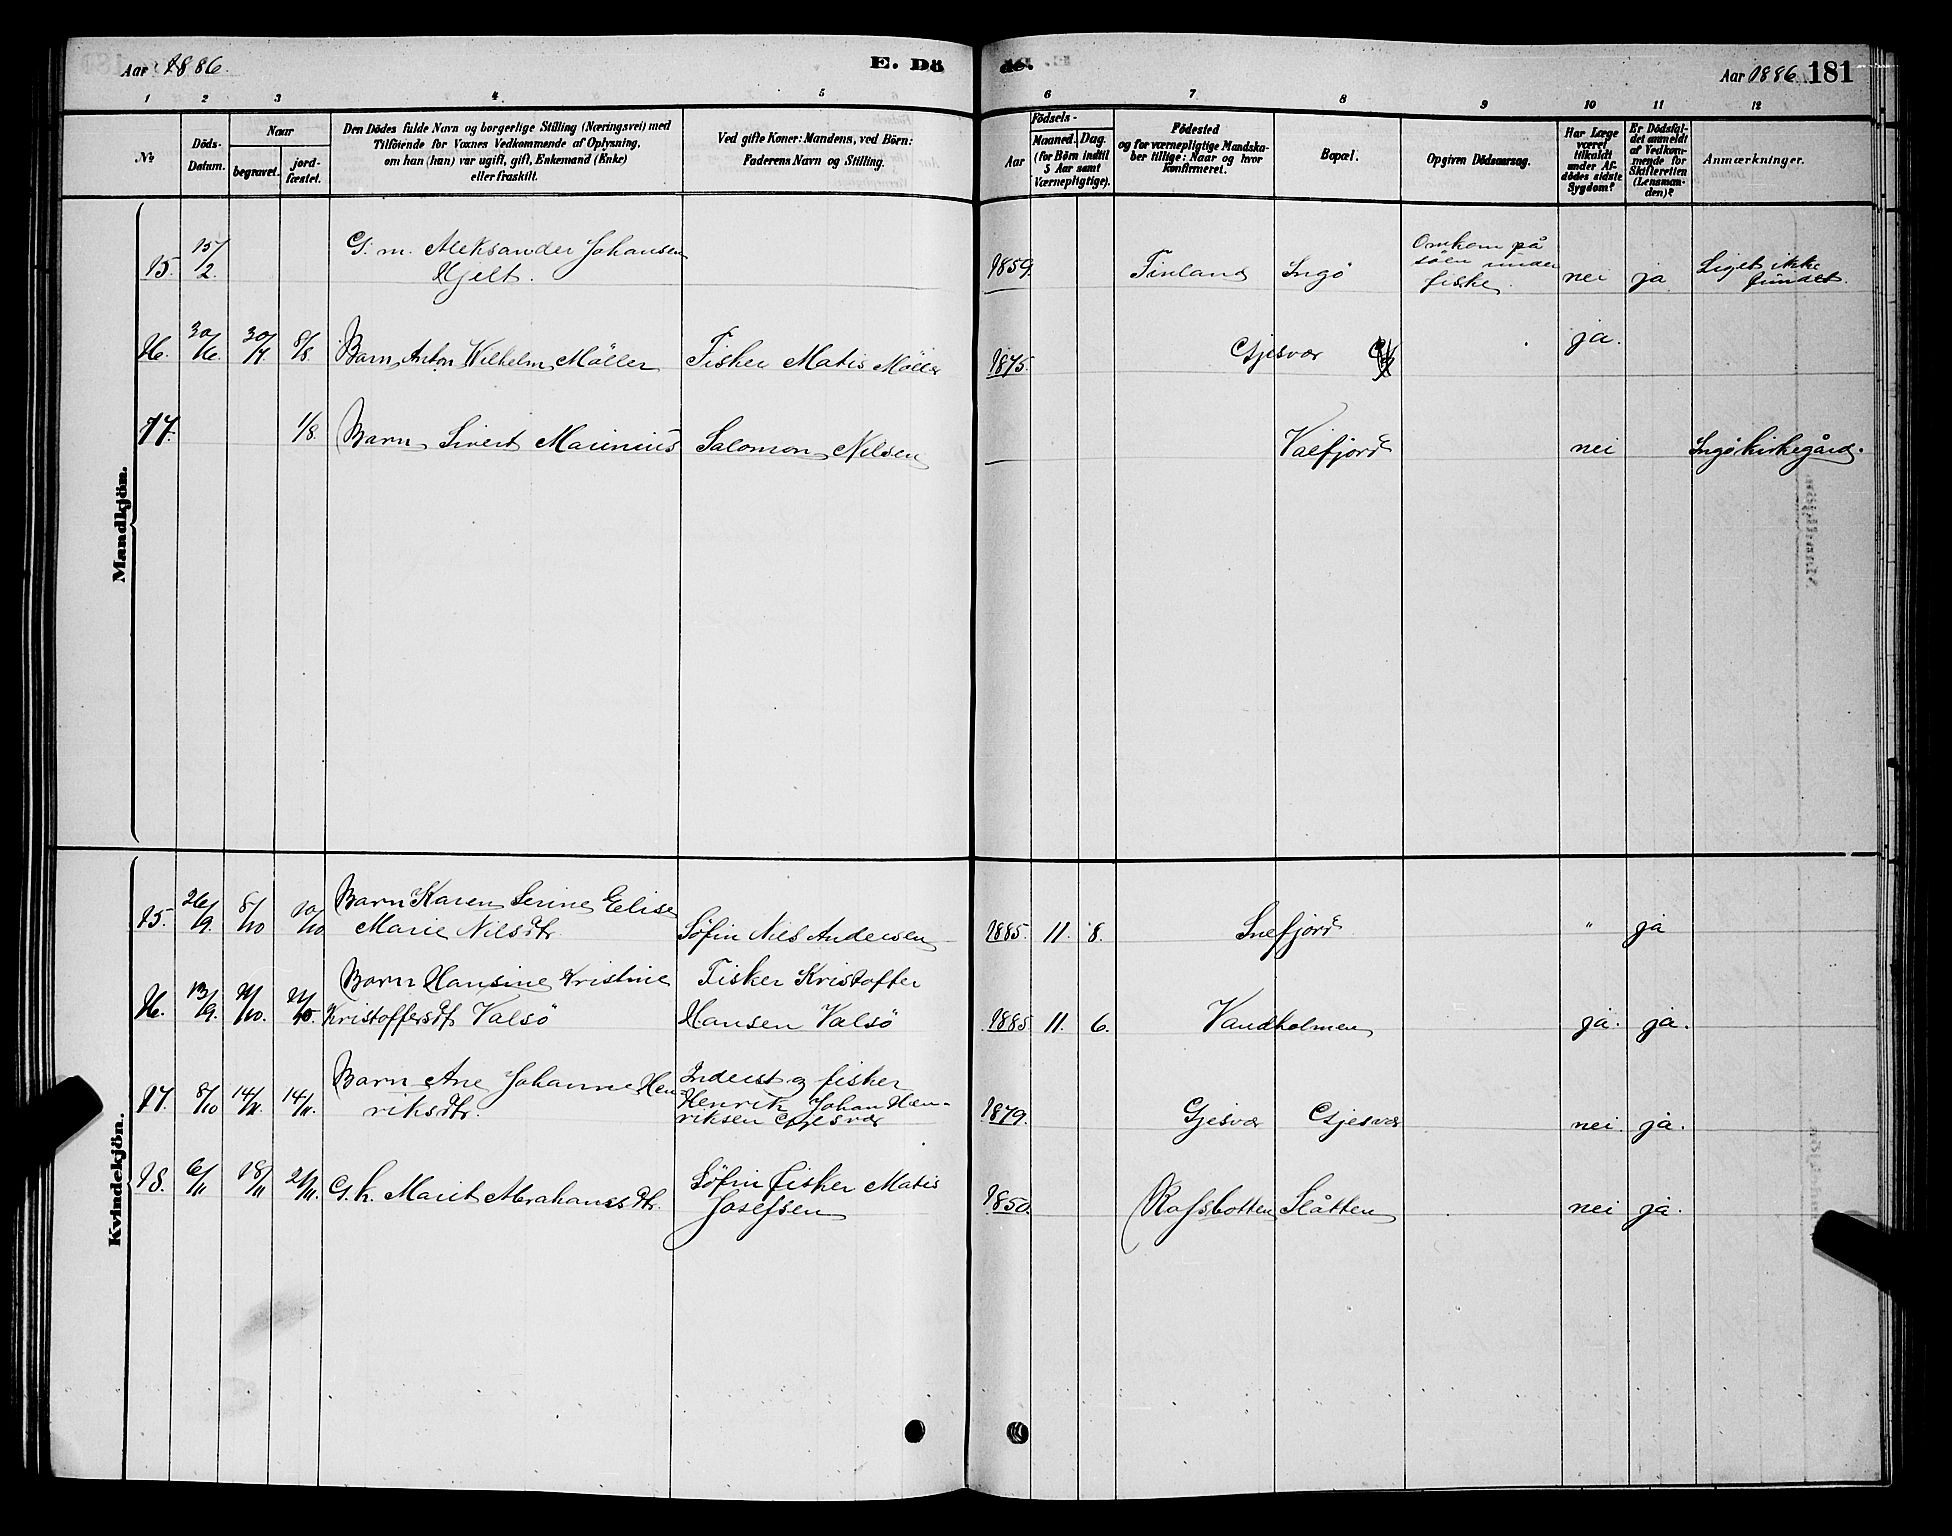 Aar 1886.
E. Dö
de.
Aar 1886
181
1 2 3 4. 5 6 7. 8 9 10 11 12
№
Döds-
Datum.
Naar
begravet.
jord-
fæstet.
Den Dödes fulde Navn og borgerlige Stilling (Næringsvei) med
Tilföiende for Voxnes Vedkommende af Oplysning,
om han (hun) var ugift, gift, Enkemand (Enke)
eller fraskilt.
Ved gifte Koner: Mandens, ved Börn:
Faderens Navn og Stilling.
Födsels-
Aar
Maaned. Dag.
(for Börn indtil
5 Aar samt
Værnepligtige).
Födested
og for værnepligtige Mandska-
ber tillige: Naar og hvor
konfirmeret.
Bopæl.
Opgiven Dödsaarsag.
Har Læge
været
tilkaldt
under Af-
dödes sidste
Sygdom?
Er Dödsfal-
det anmeldt
af Vedkom-
mende for
Skifteretten
(Lensman-
den)?
Anmærkninger.
Mandkjön.
15. 15/2 G. m. Aleksander Johansen
Hjelt.
1859. Finland Ingö
Omkom på
söen under
fiske
nei ja
Liget ikke
fundet.
16. 30/6 30/7 8/8. Barn Anton Wilhelm Möller Fisker Matis Möller 1875. Gjesvær ja.
17. 1/8. Barn Sivert Marinius Salomon Nilsen Valfjord nei Ingö kirkegård.
Kvindekjön.
15. 26/9. 8/10 10/10 Barn Karen Serine Elise
Marie Nilsdtr. Söfin Nils Andersen 1885. 11. 8. Snefjord " ja
16. 13/9. 21/10. 21/10. Barn Hansine Kristine
Kristoffersdtr Valsö
Fisker Kristoffer
Hansen Valsö 1885 11. 6. Vandholmen ja. ja.
17. 8/10 14/11. 14/11. Barn Ane Johanne Hen-
riksdtr.
Inderst og fisker
Henrik Johan Hen-
riksen Gjesvær
1879. Gjesvær Gjesvær nei. ja.
18. 6/11 18/11 21/11. G. k. Marit Abrahamsdtr. Söfin fisker Matis
Josefsen 1850. Rafsbotten Slåtten nei ja.